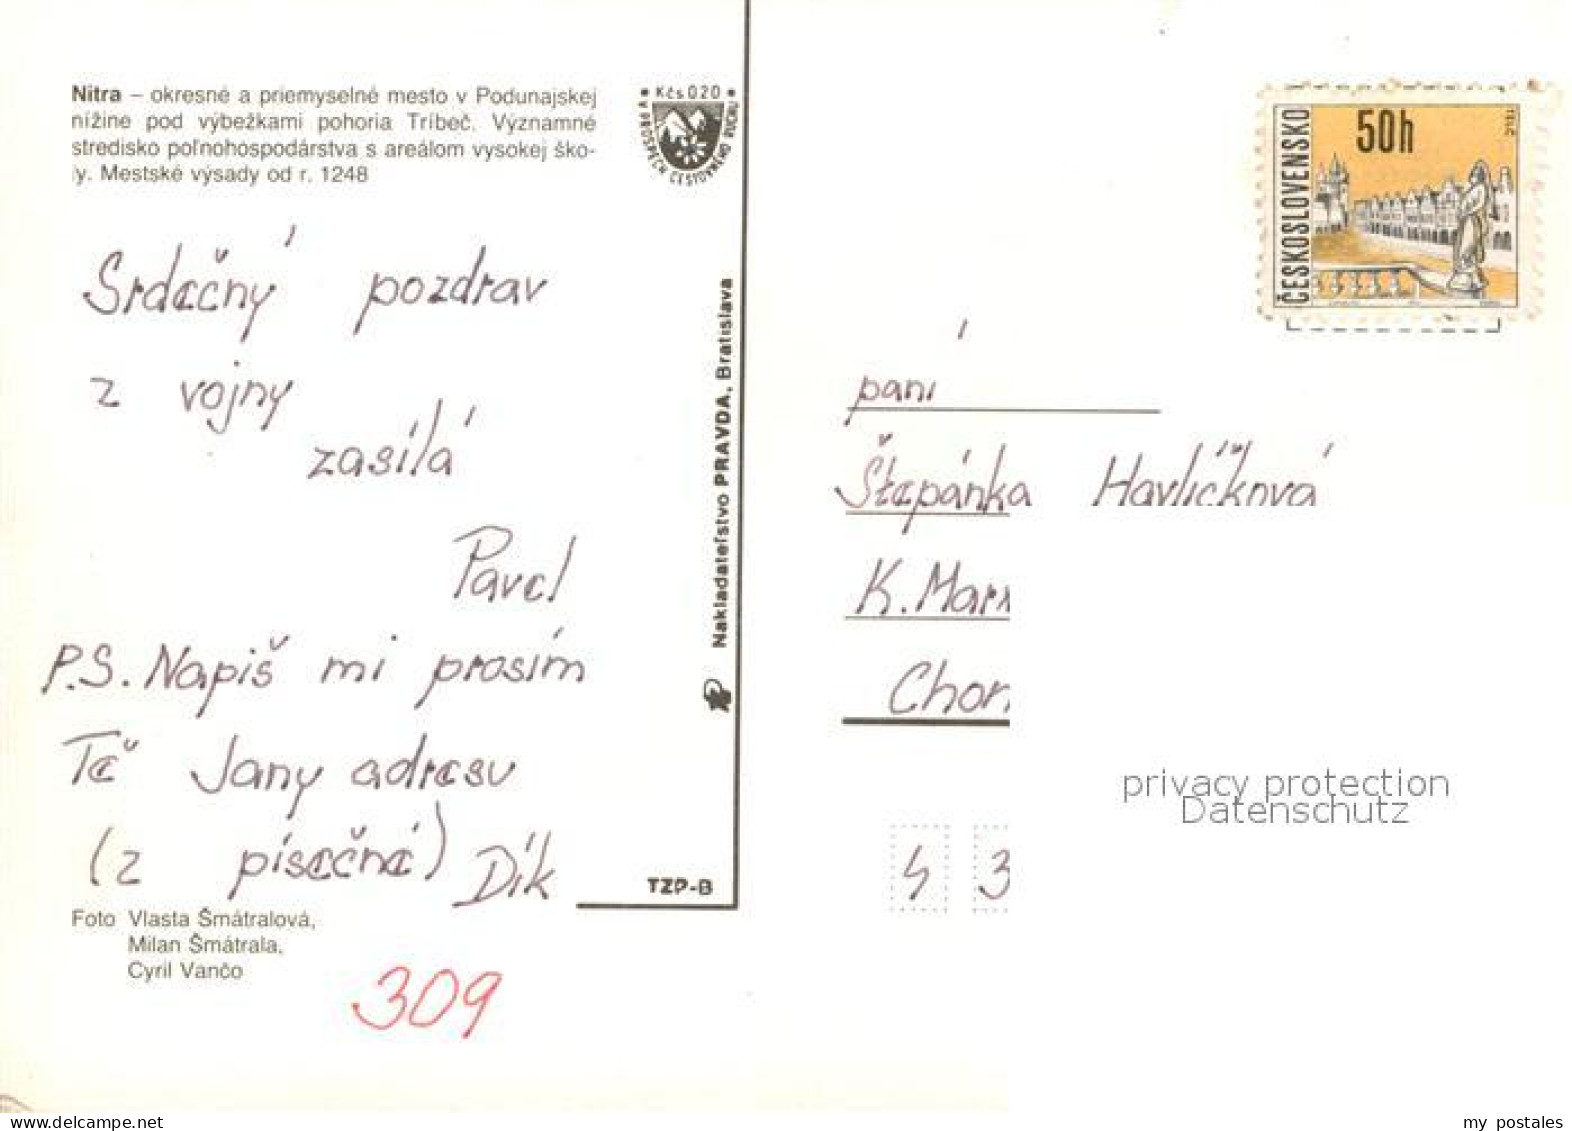 Nitra – okresné a priemyselné mesto v Podunajskej
nížine pod výbežkami pohoria Tribeč. Významné
stredisko poľnohospodárstva s areálom vysokej ško-
ly. Mestské výsady od r. 1248
Kčs 020
V PROSPĚCH CESTOVNÉHO RUCHU
Srdečný pozdrav
z vojny
zasílá
Pavel
P.S. Napiš mi prosím
Tě Jany adresu
(z písečné) Dík
Foto Vlasta Šmátralová,
Milan Šmátrala,
Cyril Vančo
309
Nakladateľstvo PRAVDA, Bratislava
TZP-B
ČESKOSLOVENSKO
50h
TELČ
paní
Štěpánka Havlíčková
K. Marx
Chom
4 3
privacy protection
Datenschutz
delcampe.net
my postales